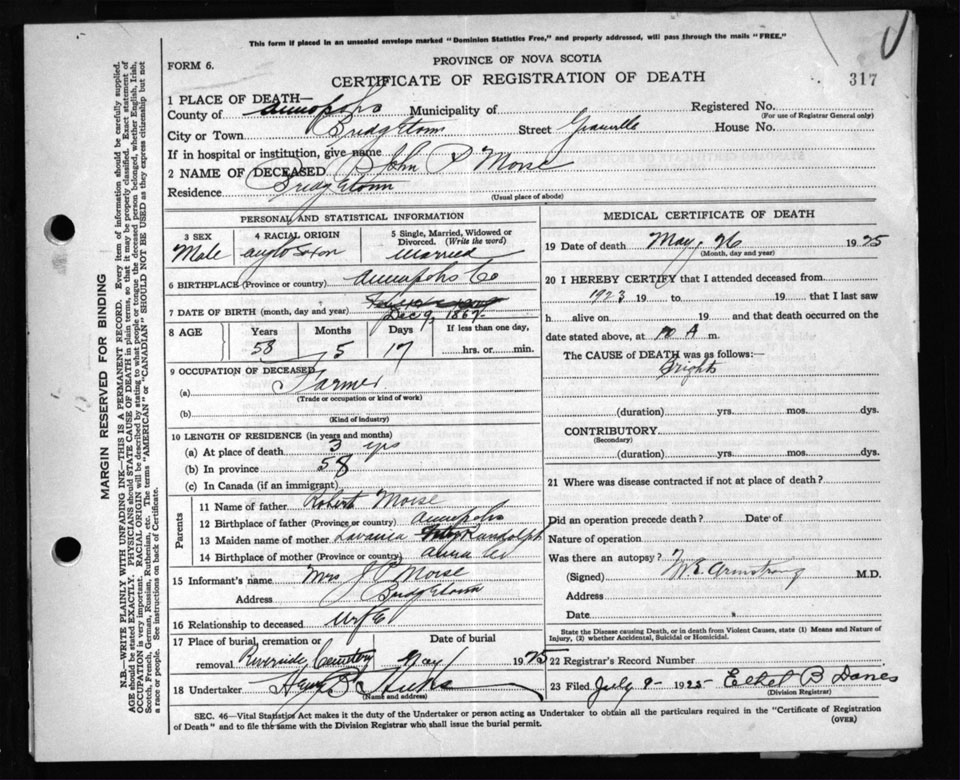 This form if placed in an unsealed envelope marked "Dominion Statistics Free," and properly addressed, will pass through the mails "FREE."
FORM 6.
PROVINCE OF NOVA SCOTIA
CERTIFICATE OF REGISTRATION OF DEATH
317
1 PLACE OF DEATH—
County of Annapolis Municipality of Registered No.
(For use of Registrar General only)
City or Town Bridgetown Street Granville House No.
If in hospital or institution, give name
2 NAME OF DECEASED John P Morse
Residence Bridgetown
(Usual place of abode)
PERSONAL AND STATISTICAL INFORMATION
3 SEX 4 RACIAL ORIGIN 5 Single, Married, Widowed or Divorced. (Write the word)
Male anglo Saxon married
6 BIRTHPLACE (Province or country) Annapolis Co
7 DATE OF BIRTH (month, day and year) Dec 9, 1867
8 AGE Years Months Days If less than one day,
58 5 17 hrs. or min.
9 OCCUPATION OF DECEASED
(a) Farmer
(Trade or occupation or kind of work)
(b)
(Kind of industry)
10 LENGTH OF RESIDENCE (in years and months)
(a) At place of death 3 yrs
(b) In province 58
(c) In Canada (if an immigrant)
Parents
11 Name of father Robert Morse
12 Birthplace of father (Province or country) Annapolis
13 Maiden name of mother Lavania Randolph
14 Birthplace of mother (Province or country) Anna Co
15 Informant's name Mrs J P Morse
Address Bridgetown
16 Relationship to deceased Wife
17 Place of burial, cremation or removal Date of burial
Riverside Cemetery May 1925
18 Undertaker Hicks
(Name and address)
MEDICAL CERTIFICATE OF DEATH
19 Date of death May, 26 1925
(Month, day and year)
20 I HEREBY CERTIFY that I attended deceased from
1923 19 to 19 that I last saw
h alive on 19 and that death occurred on the
date stated above, at 10 A m.
The CAUSE OF DEATH was as follows:
Brights
(duration) yrs. mos. dys.
CONTRIBUTORY
(Secondary)
(duration) yrs. mos. dys.
21 Where was disease contracted if not at place of death?
Did an operation precede death? Date of
Nature of operation
Was there an autopsy?
(Signed) Armstrong M.D.
Address
Date
State the Disease causing Death, or in death from Violent Causes, state (1) Means and Nature of
Injury, (2) whether Accidental, Suicidal or Homicidal.
22 Registrar's Record Number
23 Filed July 9- 1925- Ethel B Danes
(Division Registrar)
SEC. 46—Vital Statistics Act makes it the duty of the Undertaker or person acting as Undertaker to obtain all the particulars required in the "Certificate of Registration
of Death" and to file the same with the Division Registrar who shall issue the burial permit.
(OVER)
MARGIN RESERVED FOR BINDING
N.B.—WRITE PLAINLY WITH UNFADING INK—THIS IS A PERMANENT RECORD. Every item of information should be carefully supplied.
AGE should be stated EXACTLY. PHYSICIANS should STATE CAUSE OF DEATH in plain terms, so that it may be properly classified. Exact statement of
OCCUPATION is very important. RACIAL ORIGIN will be described by stating to what people or tongue the deceased person belonged, whether English, Irish,
Scotch, French, German, Russian, Ruthenian, etc. The terms "AMERICAN" or "CANADIAN" SHOULD NOT BE USED as they express citizenship but not
a race or people. See instructions on back of Certificate.